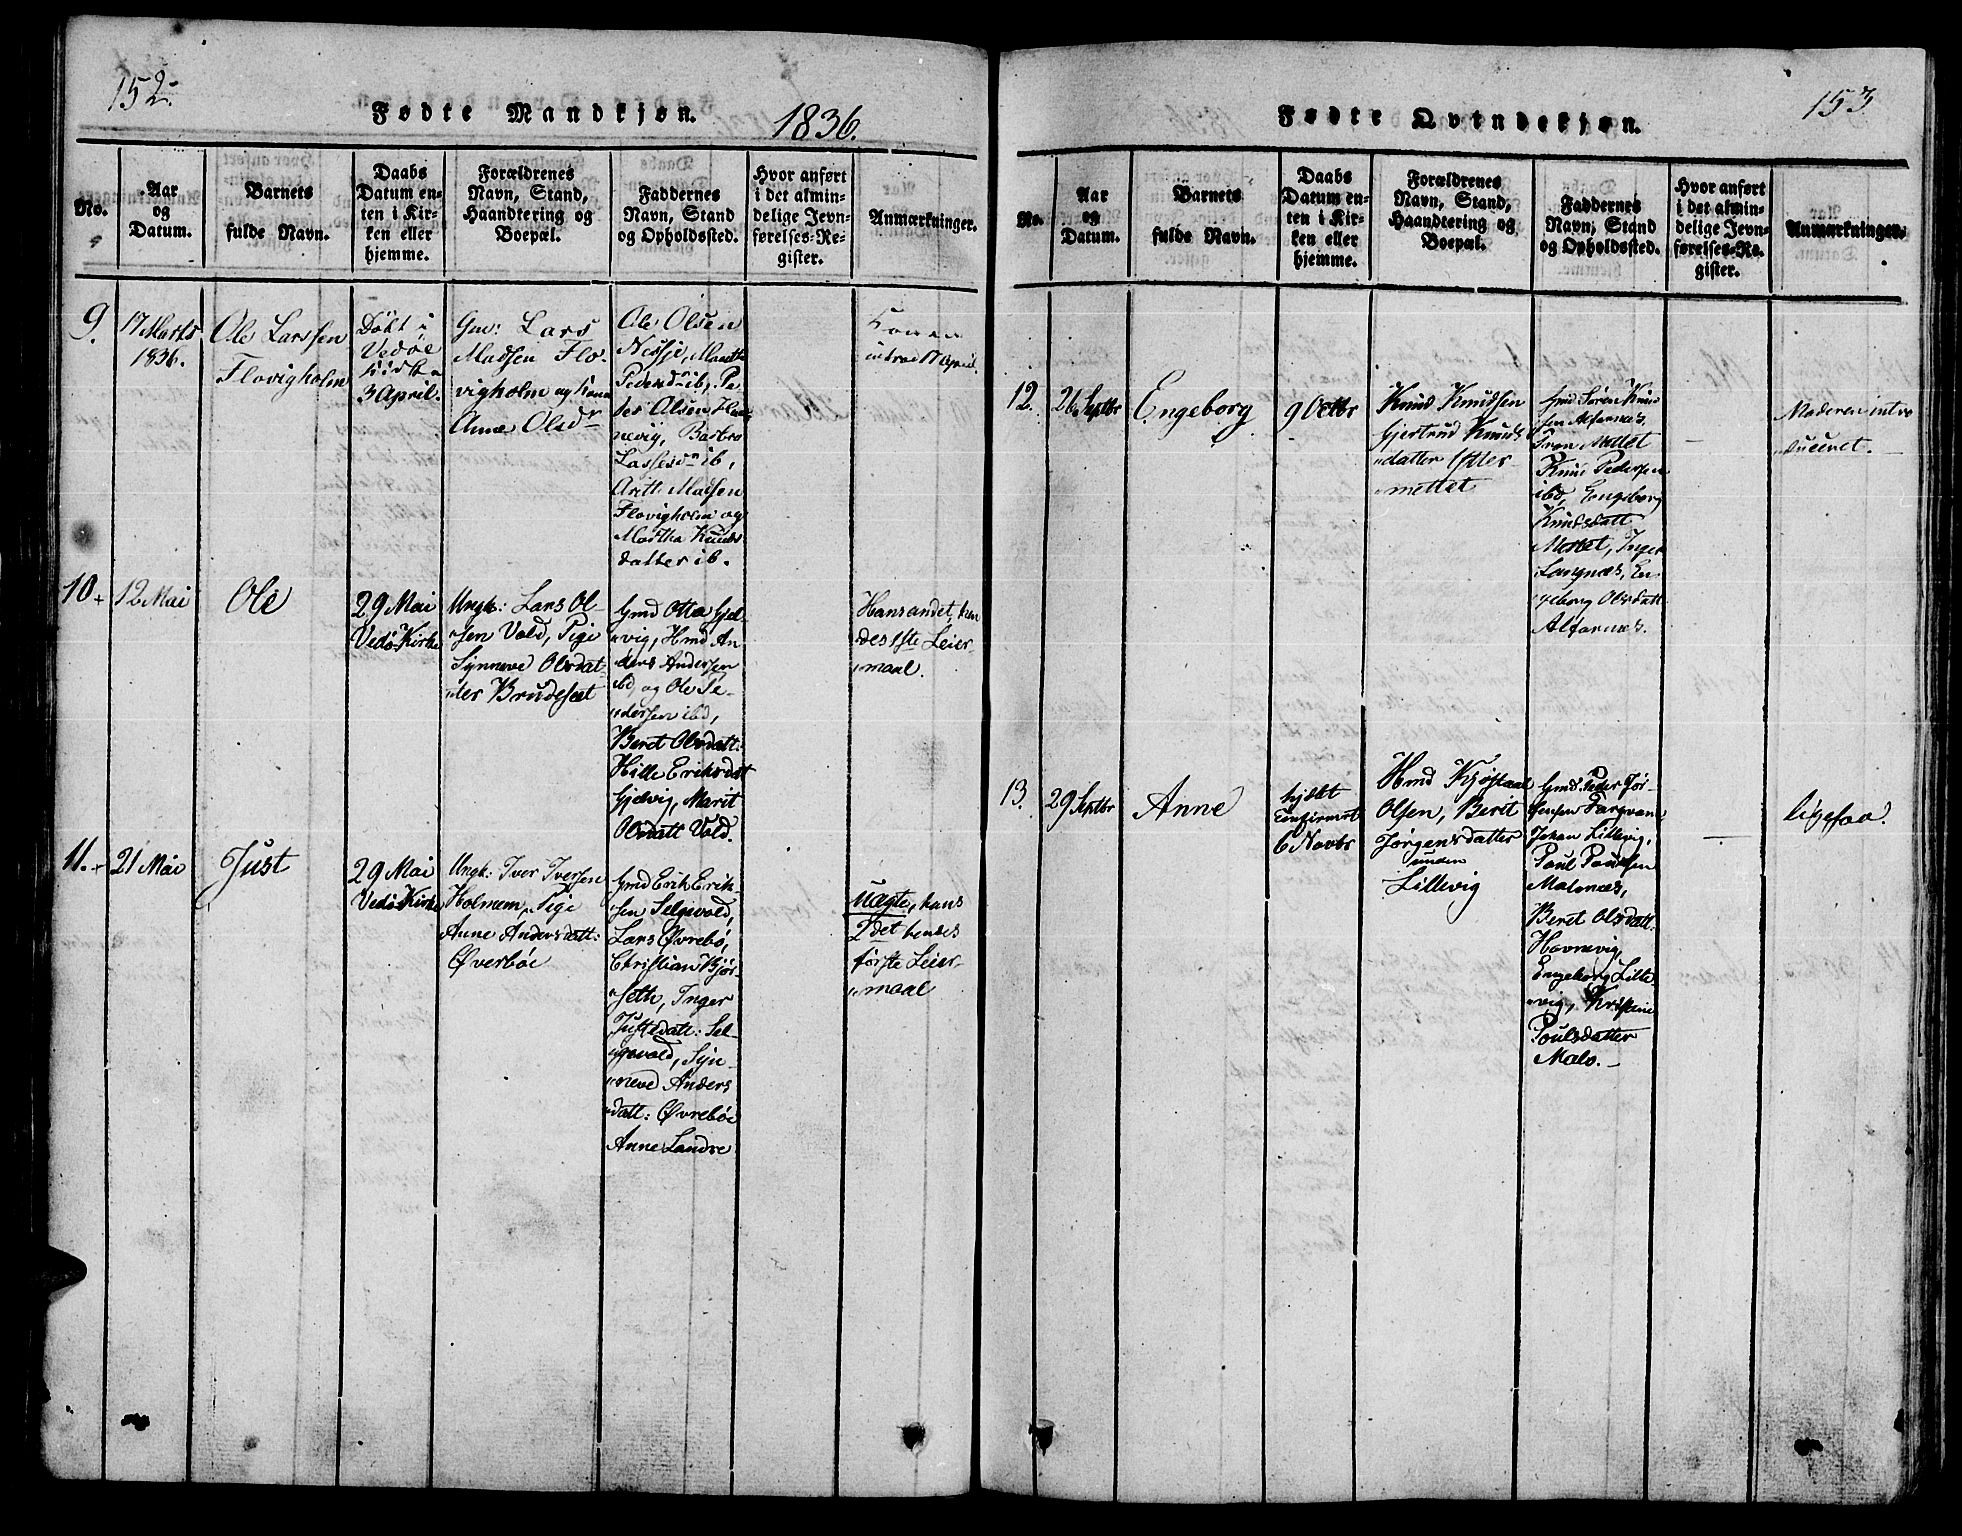 152.
Fødte Mandkjøn.
1836.
No.
Aar
og
Datum.
Barnets
fulde Navn.
Daabs
Datum en-
ten i Kir-
ken eller
hjemme.
Forældrenes
Navn, Stand,
Haandtering og
Boepæl.
Faddernes
Navn, Stand
og Opholdssted.
Hvor anført
i det almin-
delige Jevn-
førelses-Re-
gister.
Anmærkninger.
9.
17 Marts
1836.
Ole Larssen
Flovigholm
Døbt i
Vedøe
Kirke
3 April.
Gm: Lars
Madsen Flo-
vigholm og Kone
Anne Olsdr
Ole Olsen
Nesje, Marith
Pedersdr ib, Pe-
der Olsen
nevig, Barbro
Lassesdr ib,
Madsen
Flovigholm og
Martha Knuds
datter ib.
Konen
introd 17 April.
10.+
12 Mai
Ole
29 Mai
Vedø Kirke
Ungk: Lars Ol-
sen Vold, Pige
Synneve Olsdat-
ter Brudesæt
Gmd Otto Gjel-
vig, Hmd An-
ders Andersen
ibd, og Ole Pe-
dersen ibd,
Beret Olsdatt:
Hille Eriksdat
Gjelvig, Marit
Olsdatt Vold.
Hans andet, hen
des 1ste Leier-
maal.
11.+
21 Mai
Just
29 Mai
Vedø Kirke
Ungk: Iver Iversen
Holmem, Pige
Anne Andersdatt:
Øverbøe
Gmd Erik Erik-
sen Selgevold,
Lars Øvrebø,
Christian Bjør-
seth, Inger
Justsdatt: Sel-
gevold, Syn-
neve Anders
datt: Øvrebøe
Anne Sandre
Uægte, hans
2det hendes
første Leier-
maal
153
Fødte Qvindekjøn.
No.
Aar
og
Datum.
Barnets
fulde Navn.
Daabs
Datum en-
ten i Kir-
ken eller
hjemme.
Forældrenes
Navn, Stand,
Haandtering og
Boepæl.
Faddernes
Navn, Stand
og Opholdssted.
Hvor anført
i det almin-
delige Jevn-
førelses-Re-
gister.
Anmærkninger.
12.
26 Septbr
Engeborg
9 Octbr
Knud Knudsen
Gjertrud Knuds
datter Ytter-
mettet
Gmd Søren Knud
sen Alfarnæs,
Iver Mettet
Knud Pedersen
ibd, Engeborg
Knudsdatt
Mettet, Inger
Langnæs, En-
geborg Olsdatt
Alfarnæs.
—
Moderen intro
duceret.
13.
29 Septbr
Anne
hjdøbt
Confirmert
6 Novbr
Hmd Kjøstaal
Olsen, Berit
Jørgensdatter
unden
Lillevig
Gmd: Peder Jør-
gensen Fargvan
Johan Lillevig,
Paul Paulsen
Malenæs,
Beret Olsdatt.
Havnevig,
Engeborg Lille-
vig, Kristine
Poulsdatter
Malo.
—
ligesaa.